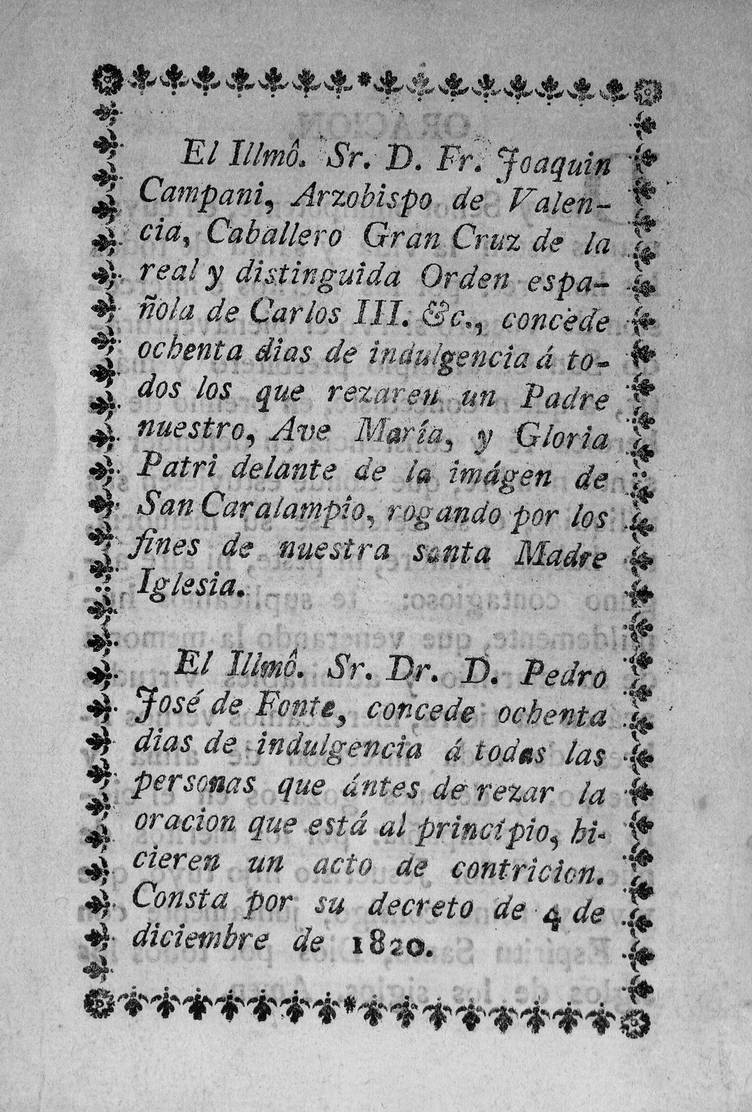 El Illmô. Sr. D. Fr. Joaquin
Campani, Arzobispo de Valen-
cia, Caballero Gran Cruz de la
real y distinguida Orden espa-
ñola de Carlos III. &c., concede
ochenta dias de indulgencia á to-
dos los que rezaren un Padre
nuestro, Ave María, y Gloria
Patri delante de la imágen de
San Caralampio, rogando por los
fines de nuestra santa Madre
Iglesia.
El Illmô. Sr. Dr. D. Pedro
José de Fonte, concede ochenta
dias de indulgencia á todas las
personas que ántes de rezar la
oracion que está al principio, hi-
cieren un acto de contricion.
Consta por su decreto de 4 de
diciembre de 1820.